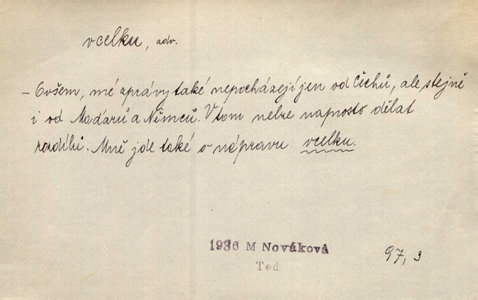 vcelku, adv.
– Ovšem, mé zprávy také nepocházejí jen od Čechů, ale stejně
i od Maďarů a Němců. V tom nelze naprosto dělat
rozdílů. Mně jde také o nápravu vcelku.
1936 M Nováková
Ted
97, 3